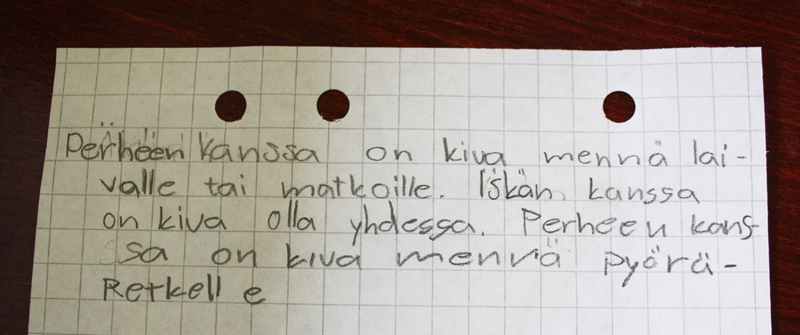 Perheen kanssa on kiva mennä lai-
valle tai matkoille. Iskän kanssa
on kiva olla yhdessa. Perheen kans-
sa on kiva mennä pyörä-
Retkelle